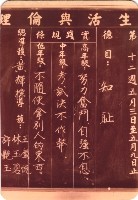 生活與倫理
第十二週五月三日至五月九日止
德目：知恥
實踐規條
高年級：努力奮鬥自強不息。
中年級：考試決不作弊。
低年級：不隨便拿別人的東西。
總導護：
導護：